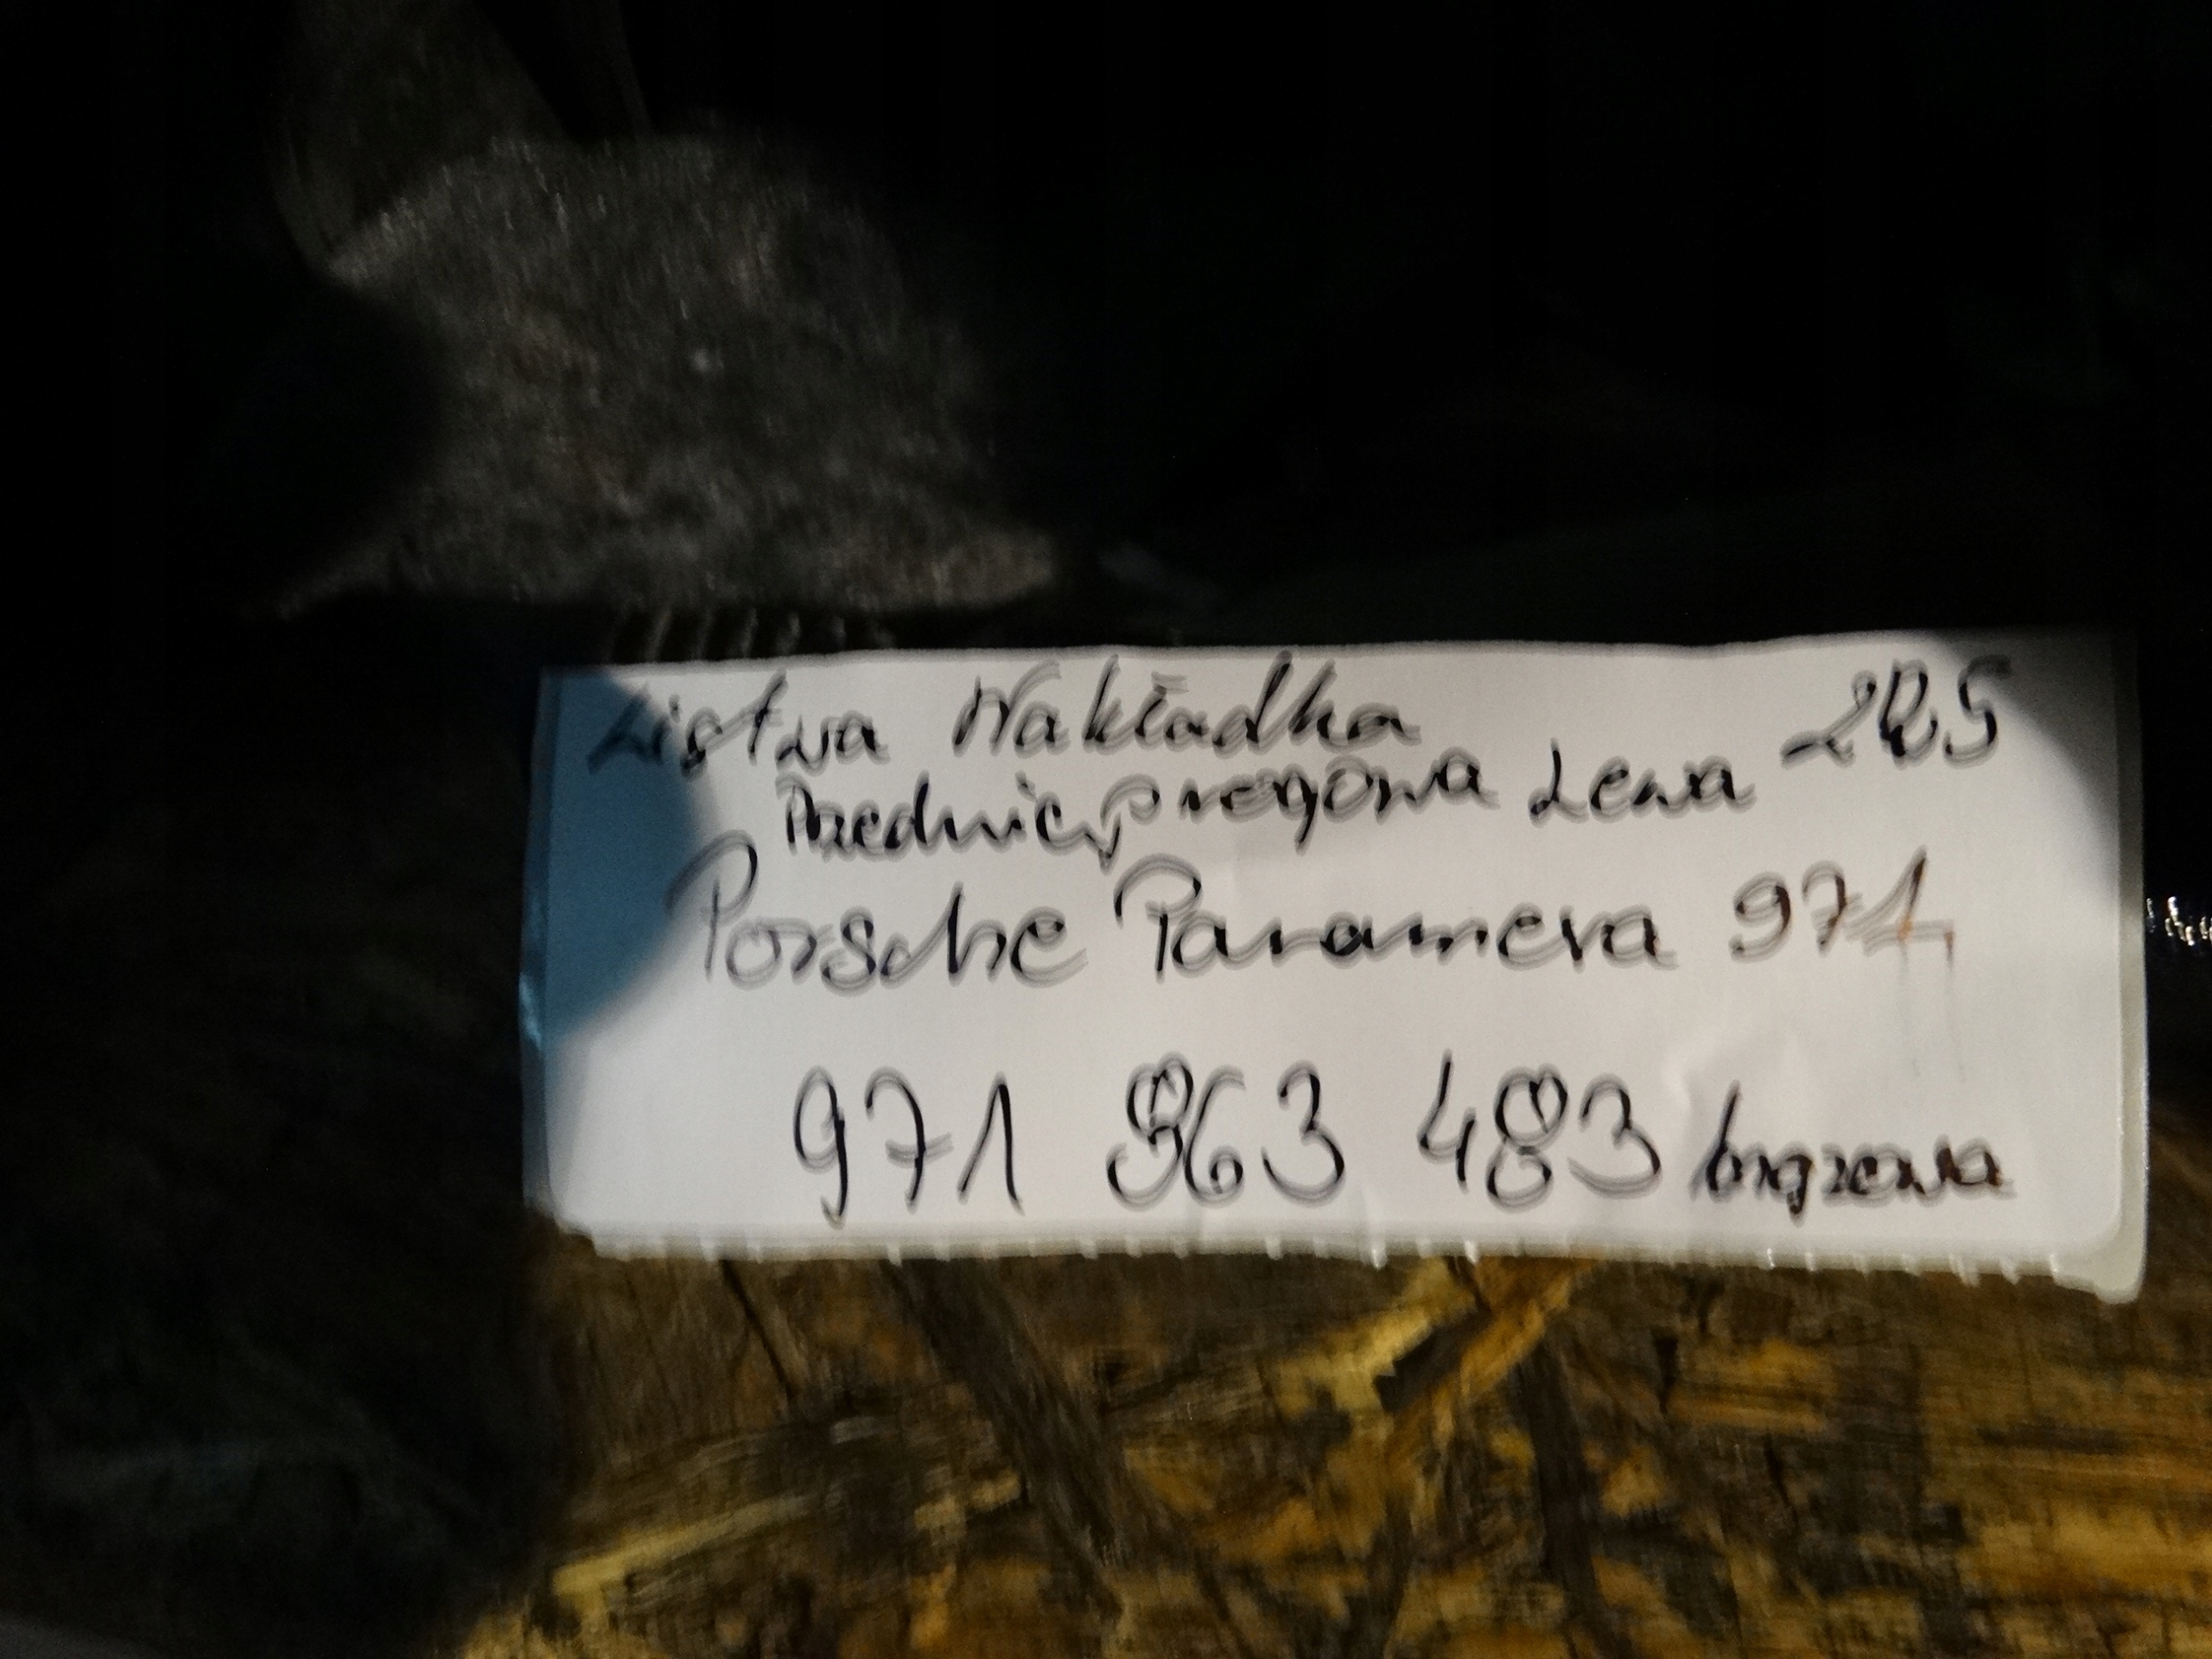 Listwa Nakładka
Przednia progowa Lewa
Porsche Panamera 971
971 863 483 brązowa